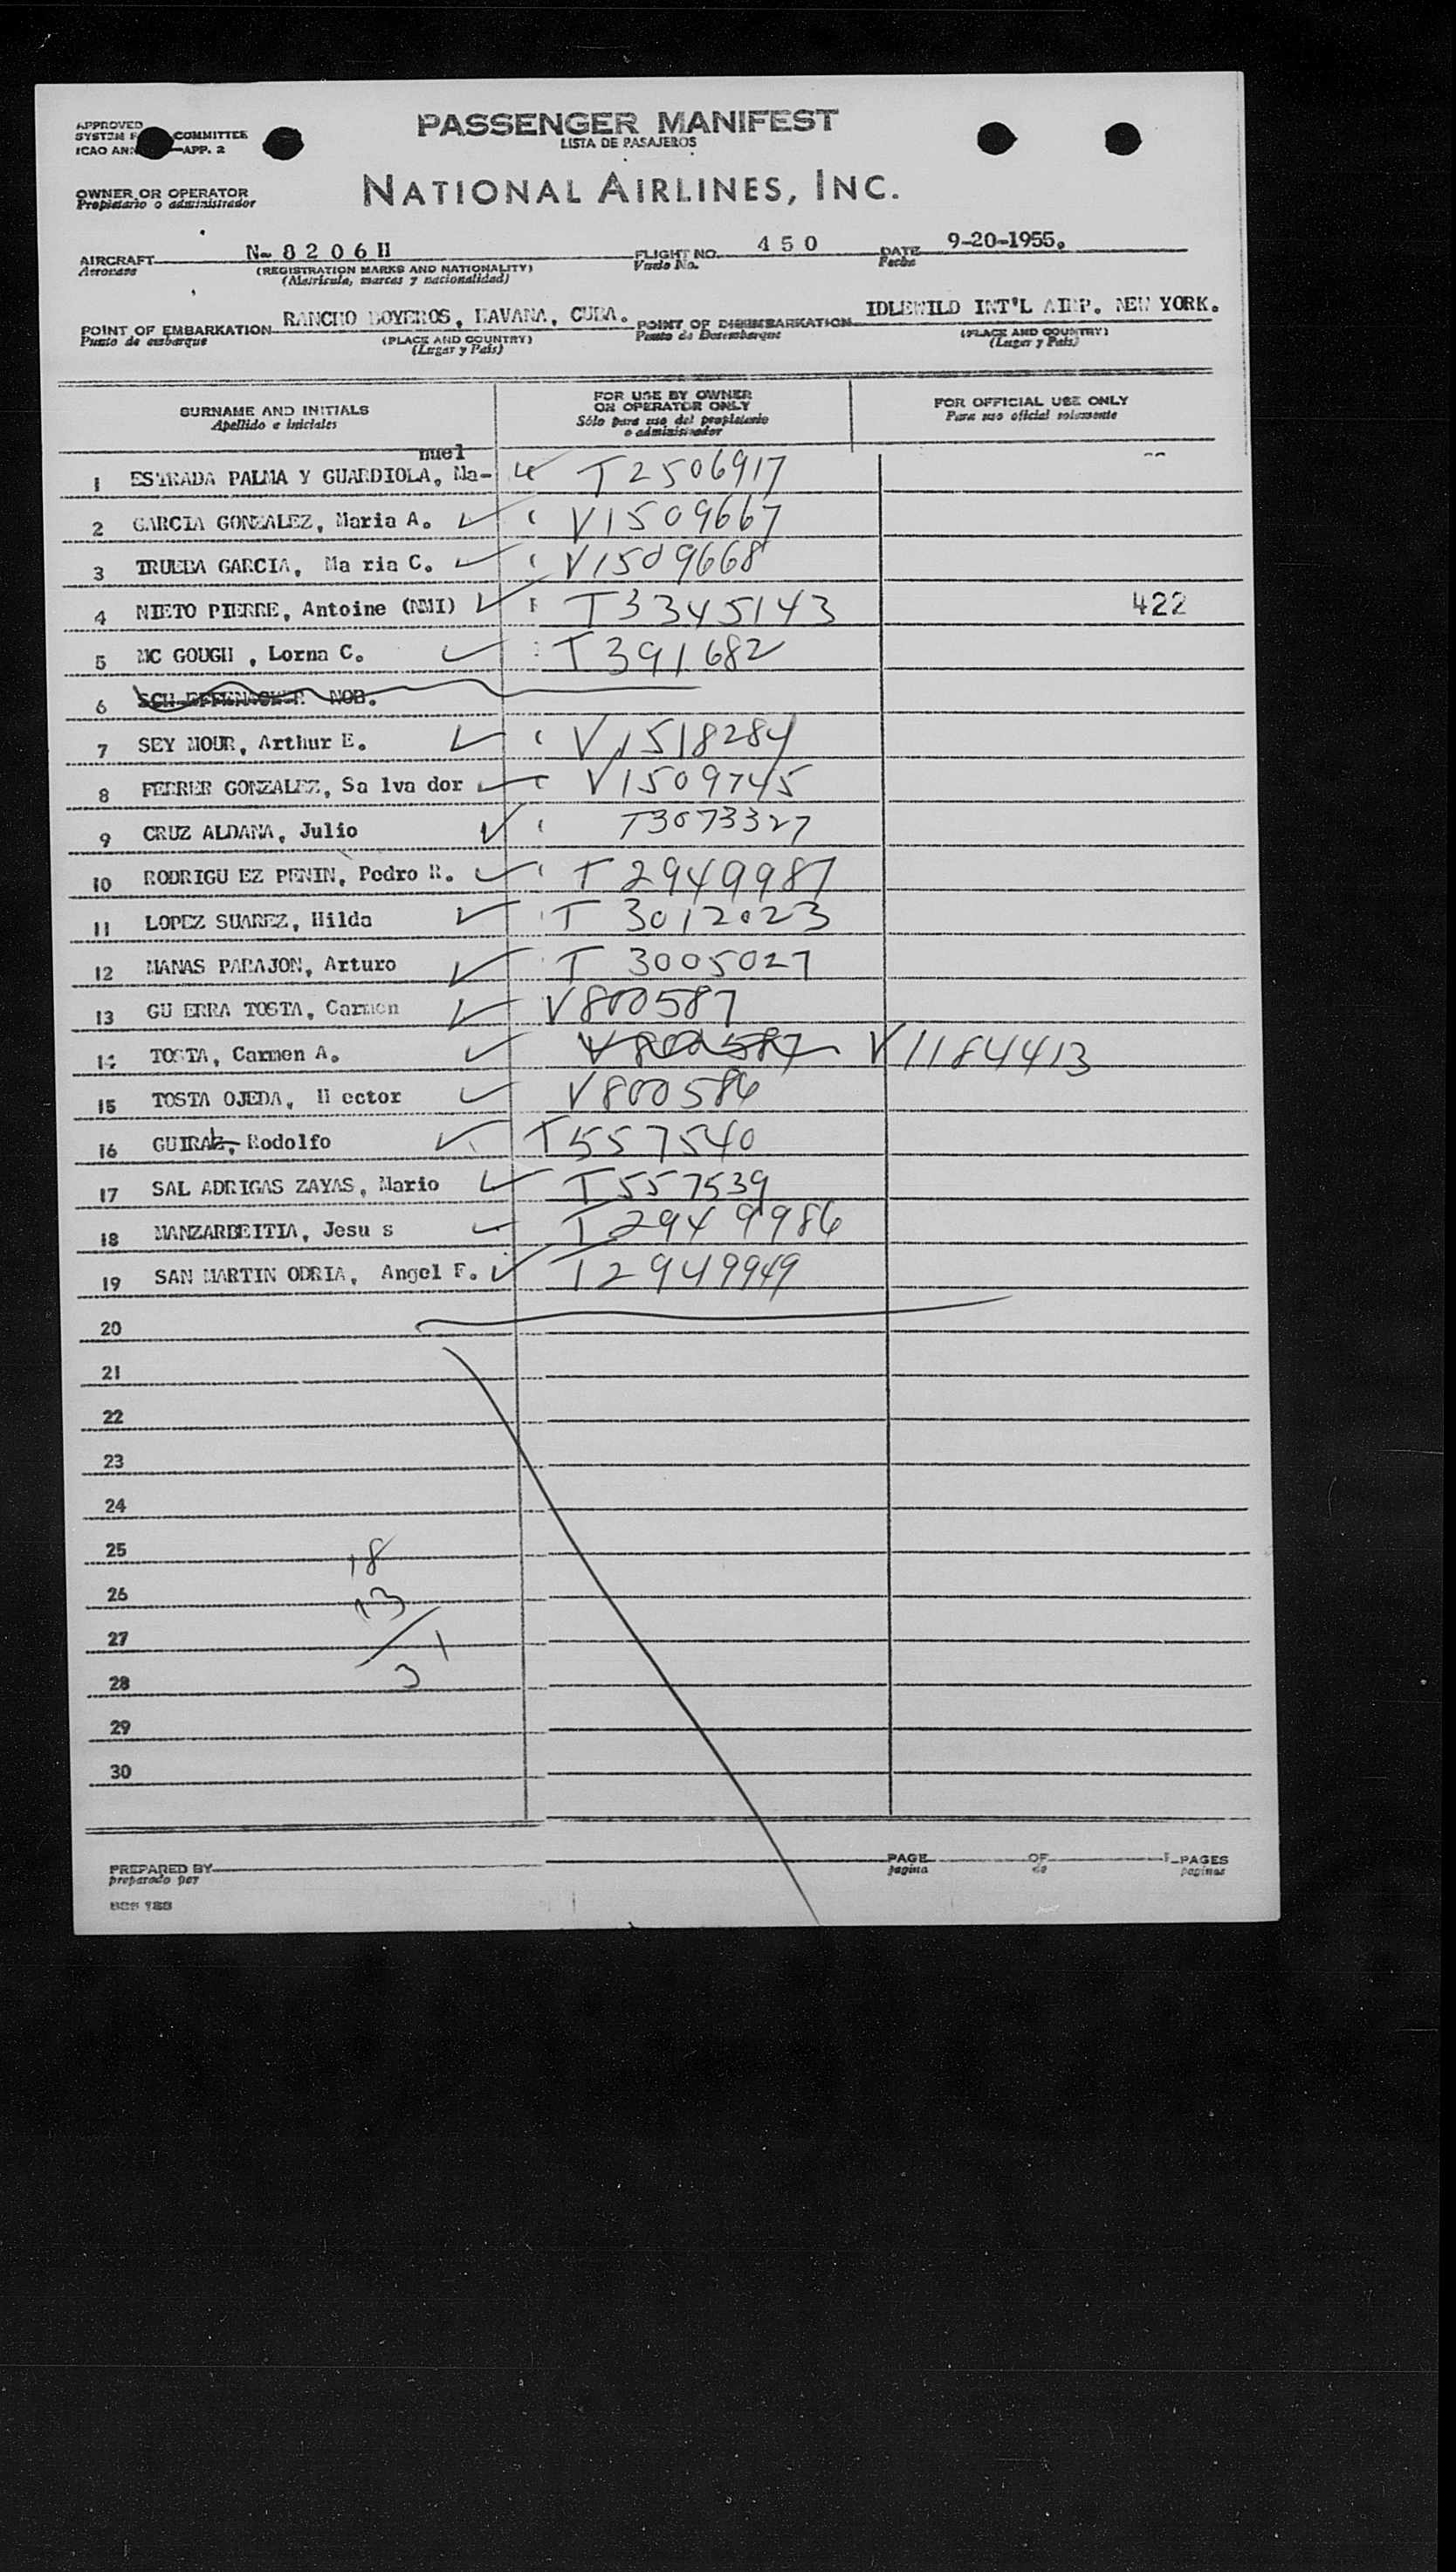 APPROVED
SYSTEM COMMITTEE
ICAO APP. 2
PASSENGER MANIFEST
LISTA DE PASAJEROS
OWNER OR OPERATOR
Propietario o administrador
NATIONAL AIRLINES, INC.
AIRCRAFT N- 8 2 0 6 H FLIGHT NO. 4 5 0 DATE 9-20-1955.
Aeronave (REGISTRATION MARKS AND NATIONALITY) Vuelo No. Fecha
(Matricula, marcas y nacionalidad)
POINT OF EMBARKATION RANCHO BOYEROS, HAVANA, CUBA. POINT OF DISEMBARKATION IDLEWILD INT'L AIRP. NEW YORK.
Punto de embarque (PLACE AND COUNTRY) Punto de Desembarque (PLACE AND COUNTRY)
(Lugar y País) (Lugar y País)
SURNAME AND INITIALS FOR USE BY OWNER OR OPERATOR ONLY FOR OFFICIAL USE ONLY
Apellido e iniciales Sólo para uso del propietario o administrador Para uso oficial solamente
nuel
1 ESTRADA PALMA Y GUARDIOLA, Ma- T2506917
2 GARCIA GONZALEZ, Maria A. V1509667
3 TRUEBA GARCIA, Ma ria C. V1509668
4 NIETO PIERRE, Antoine (NMI) T3345143 422
5 MC GOUGH , Lorna C. T391682
6 NOB.
7 SEY MOUR, Arthur E. V1518284
8 FERRER GONZALEZ, Sa lva dor V1509745
9 CRUZ ALDANA, Julio T3073327
10 RODRIGU EZ PENIN, Pedro R. T2949987
11 LOPEZ SUAREZ, Hilda T 3012023
12 MANAS PARAJON, Arturo T 3005027
13 GU ERRA TOSTA, Carmen V800587
14 TOSTA, Carmen A. V800587 V1184413
15 TOSTA OJEDA, H ector V800586
16 GUIRAL, Rodolfo T557540
17 SAL ADRIGAS ZAYAS, Mario T557539
18 MANZARBEITIA, Jesu s T2949986
19 SAN MARTIN ODRIA, Angel F. T2949949
20
21
22
23
24
25 18
26 13
27
28 31
29
30
PREPARED BY PAGE OF PAGES
preparado por pagina de paginas